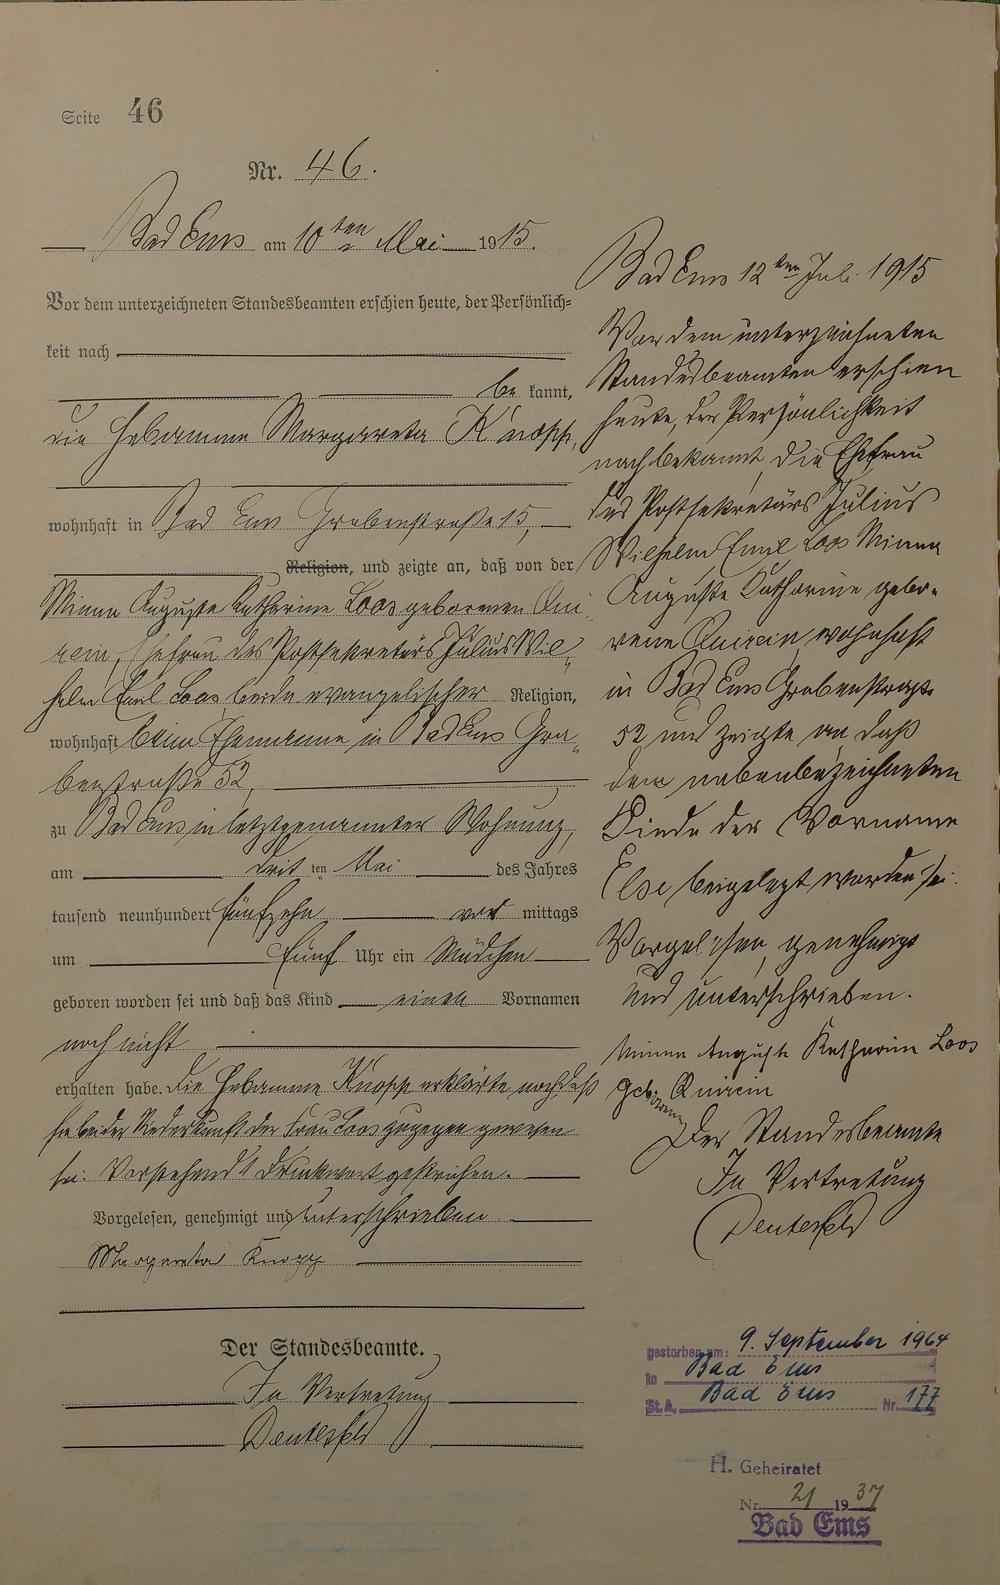 Seite 46
Nr. 46.
Bad Ems am 10ten Mai 1915.
Vor dem unterzeichneten Standesbeamten erschien heute, der Persönlich=
keit nach
be kannt,
die Hebamme Margareta Knopp,
wohnhaft in Bad Ems Grabenstraße 15,
Religion, und zeigte an, daß von der
Minna Auguste Katharine Loos geborenen Qui
rein, Ehefrau des Postsekretärs Julius Wil„
helm Emil Loos, beide evangelischer Religion,
wohnhaft beim Ehemanne, in Bad Ems Gra„
benstraße 52,
zu Bad Ems in letztgenannter Wohnung,
am ten Mai des Jahres
tausend neunhundert fünfzehn vor mittags
um fünf Uhr ein Mädchen
geboren worden sei und daß das Kind einen Vornamen
noch nicht
erhalten habe. Die Hebamme Knopp erklärte noch daß
sie bei der Niederkunft der Frau Loos zugegen gewesen
sei. Vorstehend 1 Druckwort gestrichen.
Vorgelesen, genehmigt und unterschrieben
Margareta Knopp
Der Standesbeamte.
In Vertretung
Bad Ems 12ten Juli 1915
Vor dem unterzeichneten
Standesbeamten erschien
heute, der Persönlichkeit
nach bekannt, die Ehefrau
des Postsekretärs Julius
Wilhelm Emil Loos Minna
Auguste Katharine gebo-
rene Quirein, wohnhaft
in Bad Ems Grabenstraße
52 und zeigte an daß
dem nebenbezeichneten
Kinde der Vorname
Else beigelegt worden sei.
Vorgelesen, genehmigt
und unterschrieben.
Minna Auguste Katharine Loos
geborene Quirein
Der Standesbeamte
In Vertretung
gestorben am: 9. September 1964
in Bad Ems
St.A. Bad Ems Nr. 177
H. Geheiratet
Nr. 21 1937
Bad Ems